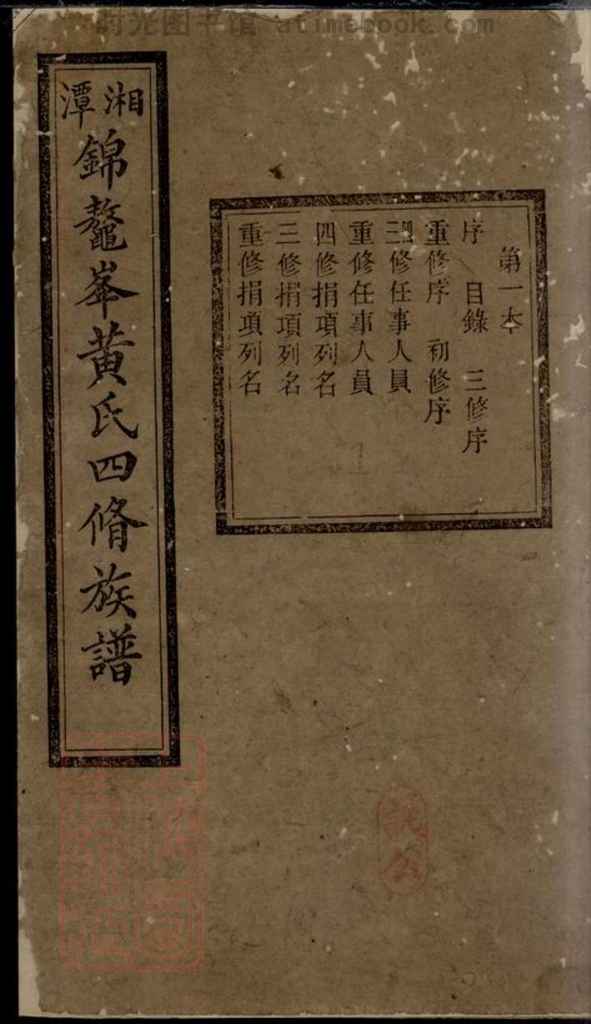 时光图书馆 atimebook.com
第一本
序 目錄 三修序
重修序 初修序
修任事人員
重修任事人員
四修捐項列名
三修捐項列名
重修捐項列名
湘潭
錦鼇峯黃氏四脩族譜